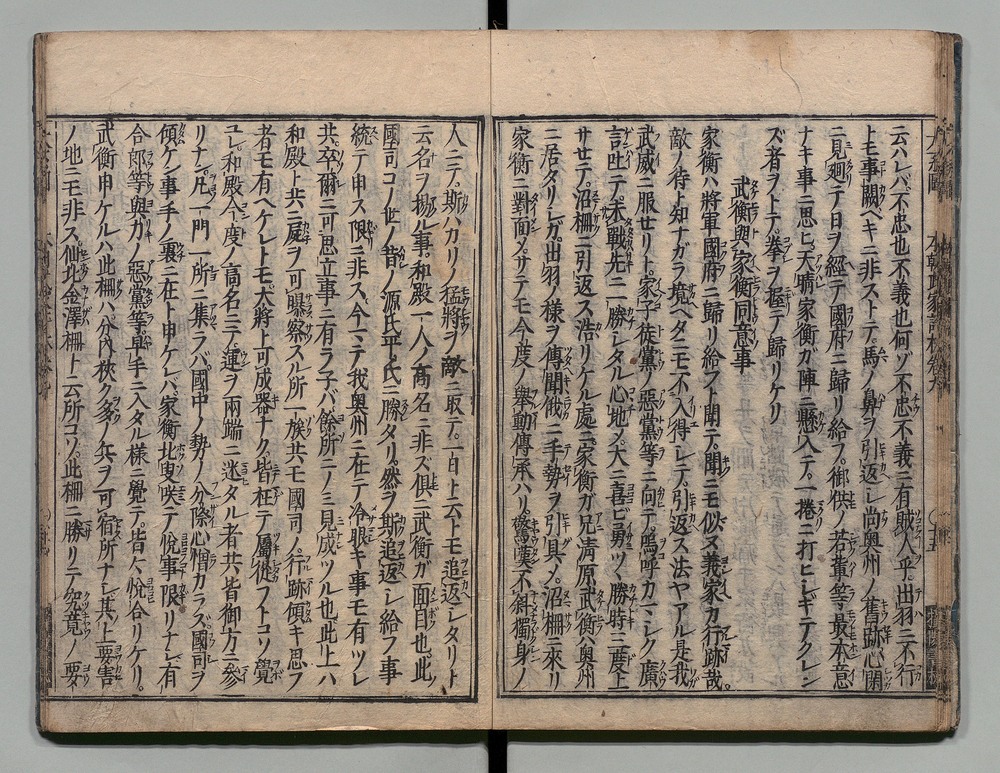 云ハレバ不忠也不義也何ゾ不忠不義ニ有賊人乎出羽ニ不行
トモ事闕ベキニ非ストテ馬ノ鼻ヲ引返シ尚奥州ノ舊跡心閑
ニ見廻テ日ヲ經テ國府ニ歸リ給フ御供ノ若輩等最本意
ナキ事ニ思ヒ天晴家衡ガ陣ニ懸入テ一捲ニ打ヒシギテクレン
ズ者ヲトテ拳ヲ握テ歸リケリ
武衡與家衡同意事
家衡ハ將軍國府ニ歸リ給フト聞テ聞ニモ似ヌ義家カ行跡哉
敵ノ待ト知ナガラ境ヘタニモ不入得シテ引返ス法ヤアル是我
武威ニ服セリト家子徒黨ノ惡黨等ニ向テ嗚呼カマシク廣
言吐テ未戰先ニ一勝シタル心地メ大ニ喜ビ勇ツヽ勝時三度上
サセテ沼柵ニ引返ス浩リケル處ニ家衡ガ兄清原武衡奥州
ニ居タリシガ出羽ノ様ヲ傳聞俄ニ手勢ヲ引具メ沼柵ニ來リ
家衡ニ對面メサテモ今度ノ舉動傳承ハリ驚嘆不斜獨身ノ
人ニテ斯ハカリノ猛將ヲ敵ニ取テ一日ト云トモ追返シタリト
云名ヲ揚ル事和殿一人ノ高名ニ非ズ倶ニ武衡ガ面目也此
國司コノ世ノ昔ノ源氏平氏ニ勝タリ然ヲ斯追返シ給フ事
統テ申ス限ニ非ス今ニテ我奥州ニ在テ冷眼キ事モ有ツレ
共卒爾ニ可思立事ニ有ラ子バ餘所ニノミ見成ツル也此上ハ
和殿ト共ニ屍ヲ可曝察スル所一族共モ國司ノ行跡傾キ思フ
者モ有ヘケレトモ大將ト可成器ナク皆枉テ屬從フトコソ覺
ユレ和殿今度ノ高名ニテ運ヲ兩端ニ迷タル者共皆御方ニ參
リナン凡一門一所ニ集ラバ國中ノ勢ノ分際心憎カラス國司ヲ
傾ケン事手ノ裏ニ在ト申ケレバ家衡北叟咲テ悅事限リナシ有
合郎等與力ノ惡黨等早手ニ入タル様ニ覺テ皆々悅合リケリ
武衡申ケルハ此柵ハ分内狹ク多ノ兵ヲ可宿所ナシ其上要害
ノ地ニモ非ス仙北金澤柵ト云所コソ此柵ニ勝リテ究竟ノ要